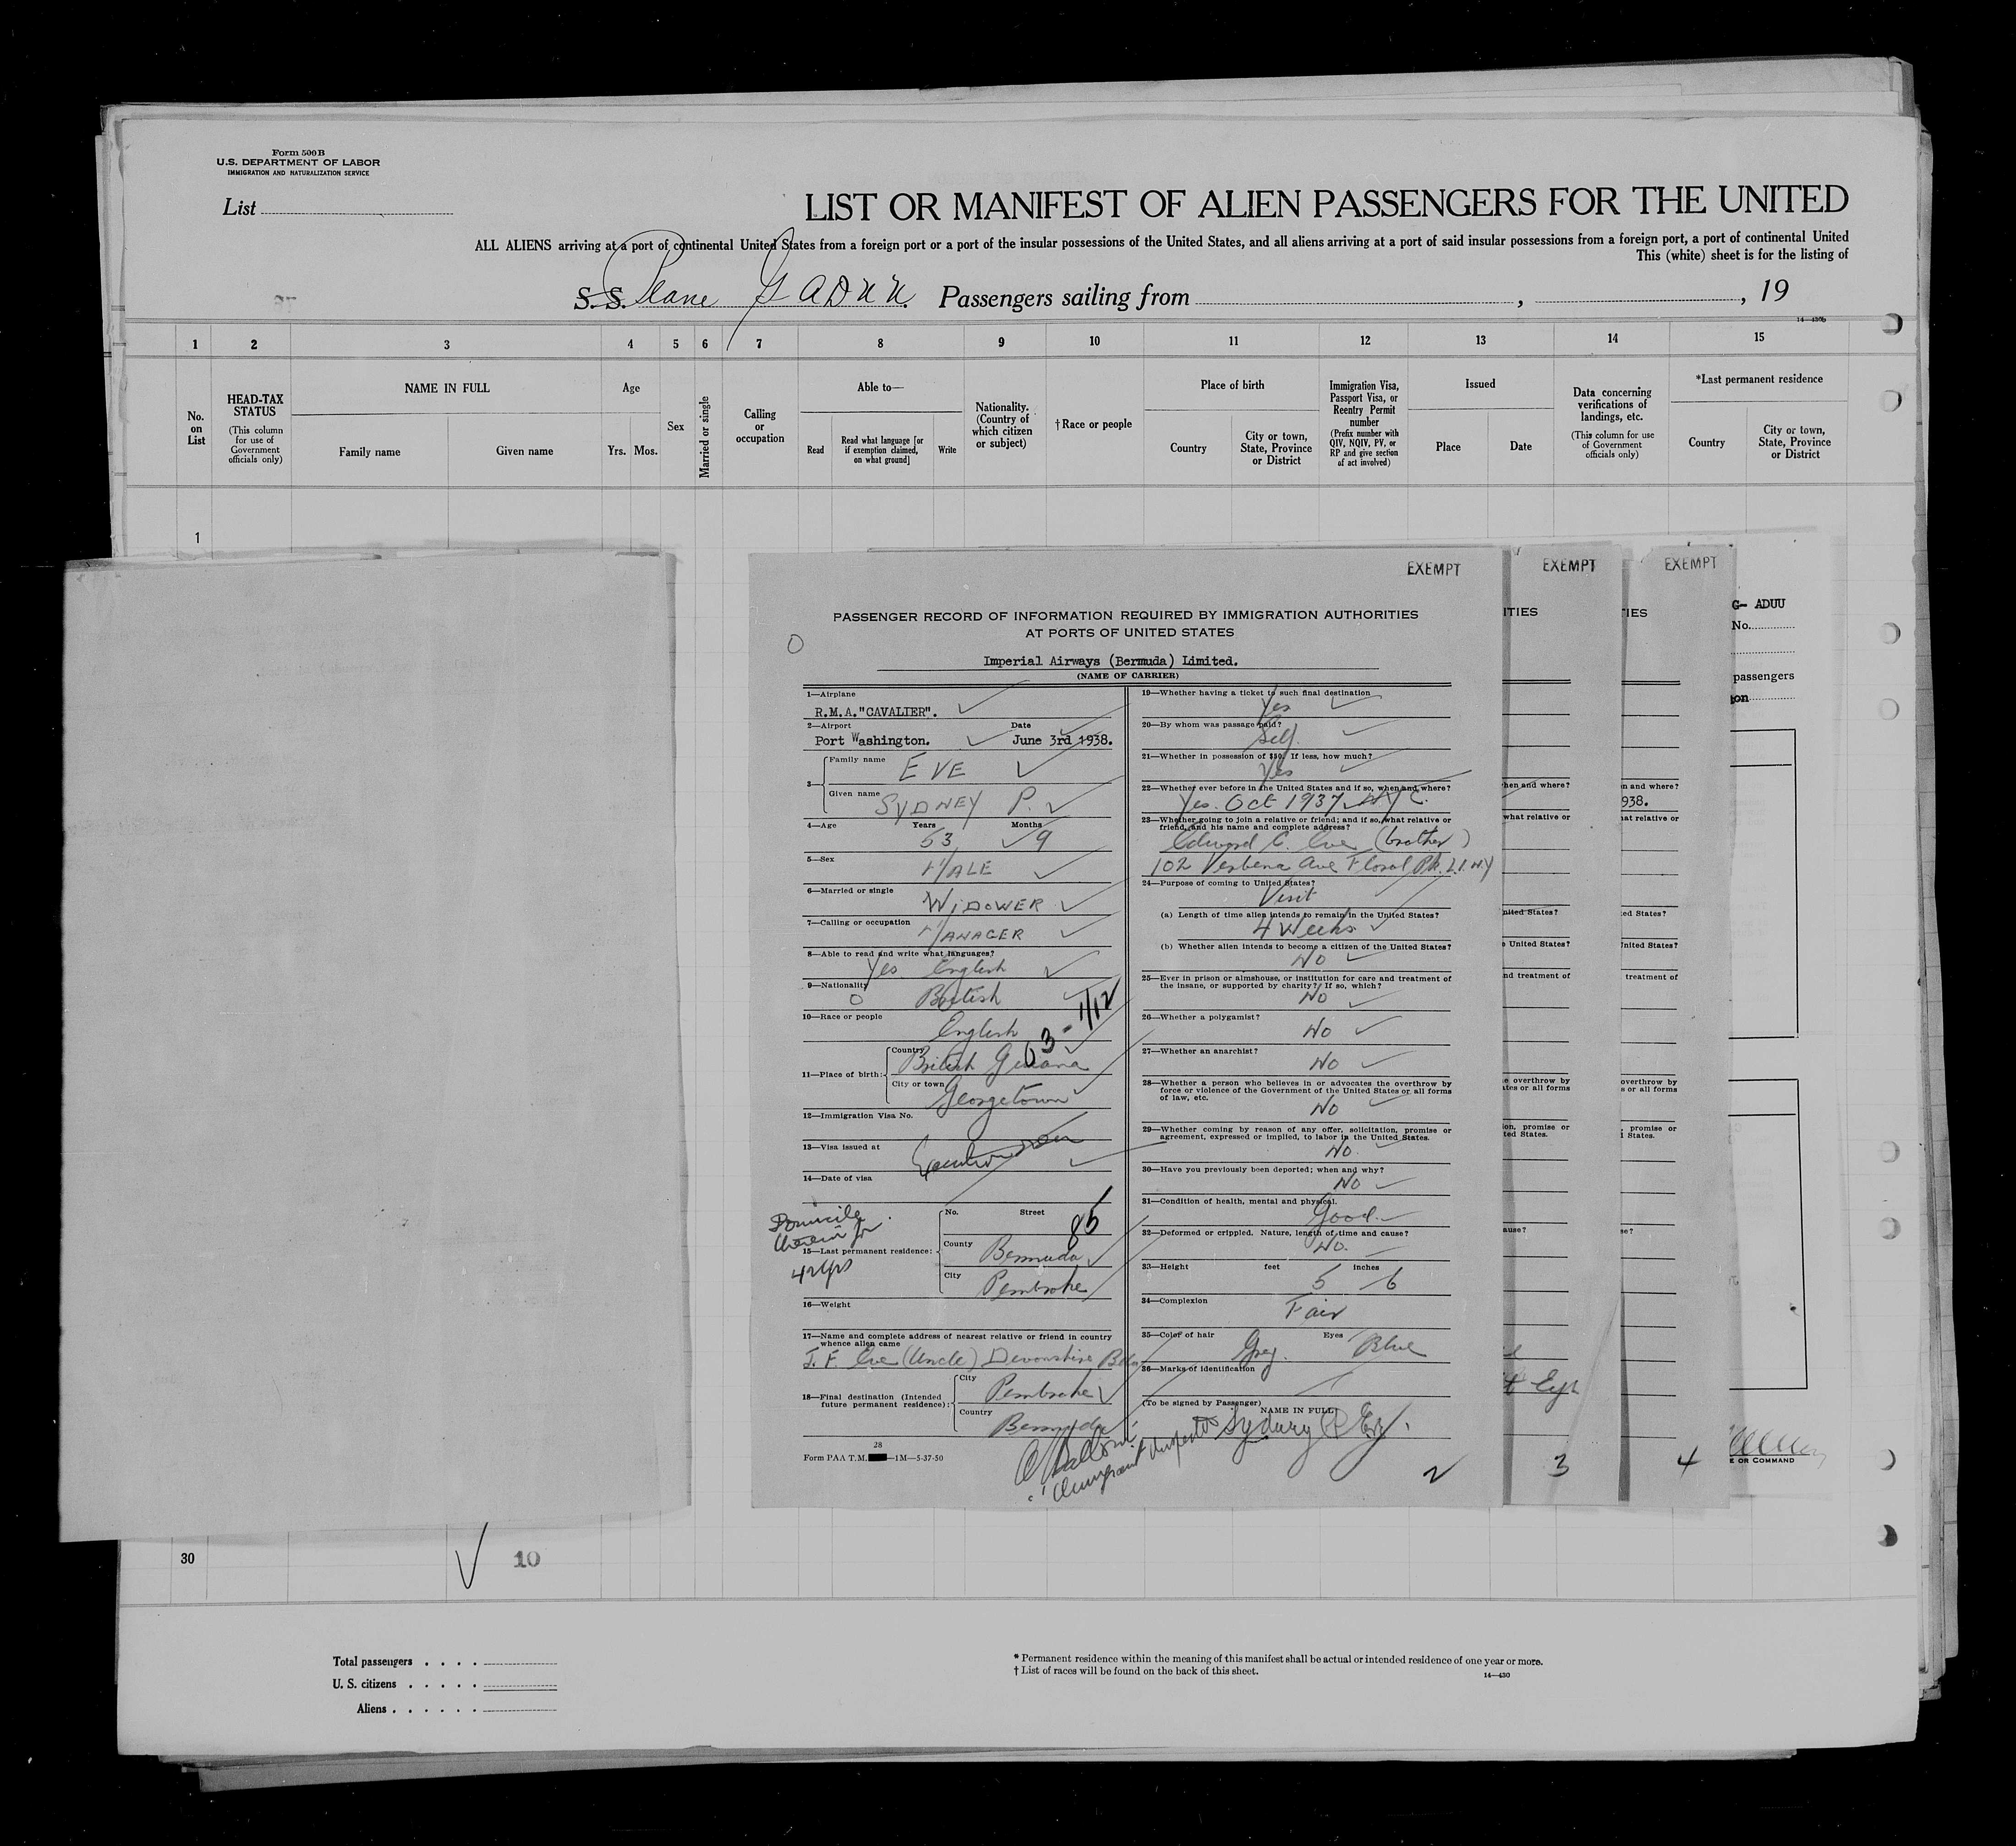 Form 500 B
U.S. DEPARTMENT OF LABOR
IMMIGRATION AND NATURALIZATION SERVICE
List
LIST OR MANIFEST OF ALIEN PASSENGERS FOR THE UNITED
ALL ALIENS arriving at a port of continental United States from a foreign port or a port of the insular possessions of the United States, and all aliens arriving at a port of said insular possessions from a foreign port, a port of continental United
This (white) sheet is for the listing of
S.S. Plane G ADUU Passengers sailing from , , 19
14—430b
1 2 3 4 5 6 7 8 9 10 11 12 13 14 15
No. on List
HEAD-TAX STATUS
(This column for use of Government officials only)
NAME IN FULL
Family name
Given name
Age
Yrs. Mos.
Sex
Married or single
Calling or occupation
Able to—
Read
Read what language [or if exemption claimed, on what ground]
Write
Nationality. (Country of which citizen or subject)
†Race or people
Place of birth
Country
City or town, State, Province or District
Immigration Visa, Passport Visa, or Reentry Permit number
(Prefix number with QIV, NQIV, PV, or RP and give section of act involved)
Issued
Place
Date
Data concerning verifications of landings, etc.
(This column for use of Government officials only)
*Last permanent residence
Country
City or town, State, Province or District
1
EXEMPT
PASSENGER RECORD OF INFORMATION REQUIRED BY IMMIGRATION AUTHORITIES
AT PORTS OF UNITED STATES
Imperial Airways (Bermuda) Limited.
(NAME OF CARRIER)
1—Airplane
R.M.A."CAVALIER".
2—Airport Date
Port Washington. June 3rd 1938.
3— Family name
EVE
Given name
SYDNEY P.
4—Age Years Months
53 9
5—Sex
MALE
6—Married or single
WIDOWER
7—Calling or occupation
MANAGER
8—Able to read and write what languages?
Yes English
9—Nationality
British
10—Race or people
English
63 - 1/12
11—Place of birth: Country
British Guiana
City or town
Georgetown
12—Immigration Visa No.
13—Visa issued at
14—Date of visa
Domicile
therein for
42 yrs
15—Last permanent residence: No. Street
85
County
Bermuda
City
Pembroke
16—Weight
17—Name and complete address of nearest relative or friend in country
whence alien came
J. F. Eve (Uncle) Devonshire Bda
18—Final destination (Intended future permanent residence): City
Pembroke
Country
Bermuda
28
Form PAA T.M. —1M—5-37-50
19—Whether having a ticket to such final destination
Yes
20—By whom was passage paid?
Self.
21—Whether in possession of $50. If less, how much?
Yes
22—Whether ever before in the United States and if so, when and where?
Yes. Oct 1937 NYC.
23—Whether going to join a relative or friend; and if so, what relative or
friend, and his name and complete address?
Edward C. Eve (brother)
102 Verbena Ave Floral Pk. L.I. N.Y
24—Purpose of coming to United States?
Visit
(a) Length of time alien intends to remain in the United States?
4 Weeks
(b) Whether alien intends to become a citizen of the United States?
No
25—Ever in prison or almshouse, or institution for care and treatment of
the insane, or supported by charity? If so, which?
No
26—Whether a polygamist?
No
27—Whether an anarchist?
No
28—Whether a person who believes in or advocates the overthrow by
force or violence of the Government of the United States or all forms
of law, etc.
No
29—Whether coming by reason of any offer, solicitation, promise or
agreement, expressed or implied, to labor in the United States.
No.
30—Have you previously been deported; when and why?
No
31—Condition of health, mental and physical.
Good.
32—Deformed or crippled. Nature, length of time and cause?
No.
33—Height feet inches
5 6
34—Complexion
Fair
35—Color of hair Eyes
Grey. Blue
36—Marks of identification
(To be signed by Passenger)
NAME IN FULL
Sydney P Eve.
Immigrant Inspector
2
EXEMPT
ITIES
hen and where?
what relative or
nited States?
e United States?
nd treatment of
e overthrow by
ates or all forms
ion, promise or
ted States.
ause?
3
EXEMPT
IES
n and where?
938.
hat relative or
ted States?
United States?
treatment of
overthrow by
s or all forms
, promise or
d States.
se?
4
G- ADUU
No.
passengers
ton
E OR COMMAND
30
10
Total passengers
U. S. citizens
Aliens
* Permanent residence within the meaning of this manifest shall be actual or intended residence of one year or more.
† List of races will be found on the back of this sheet.
14—430